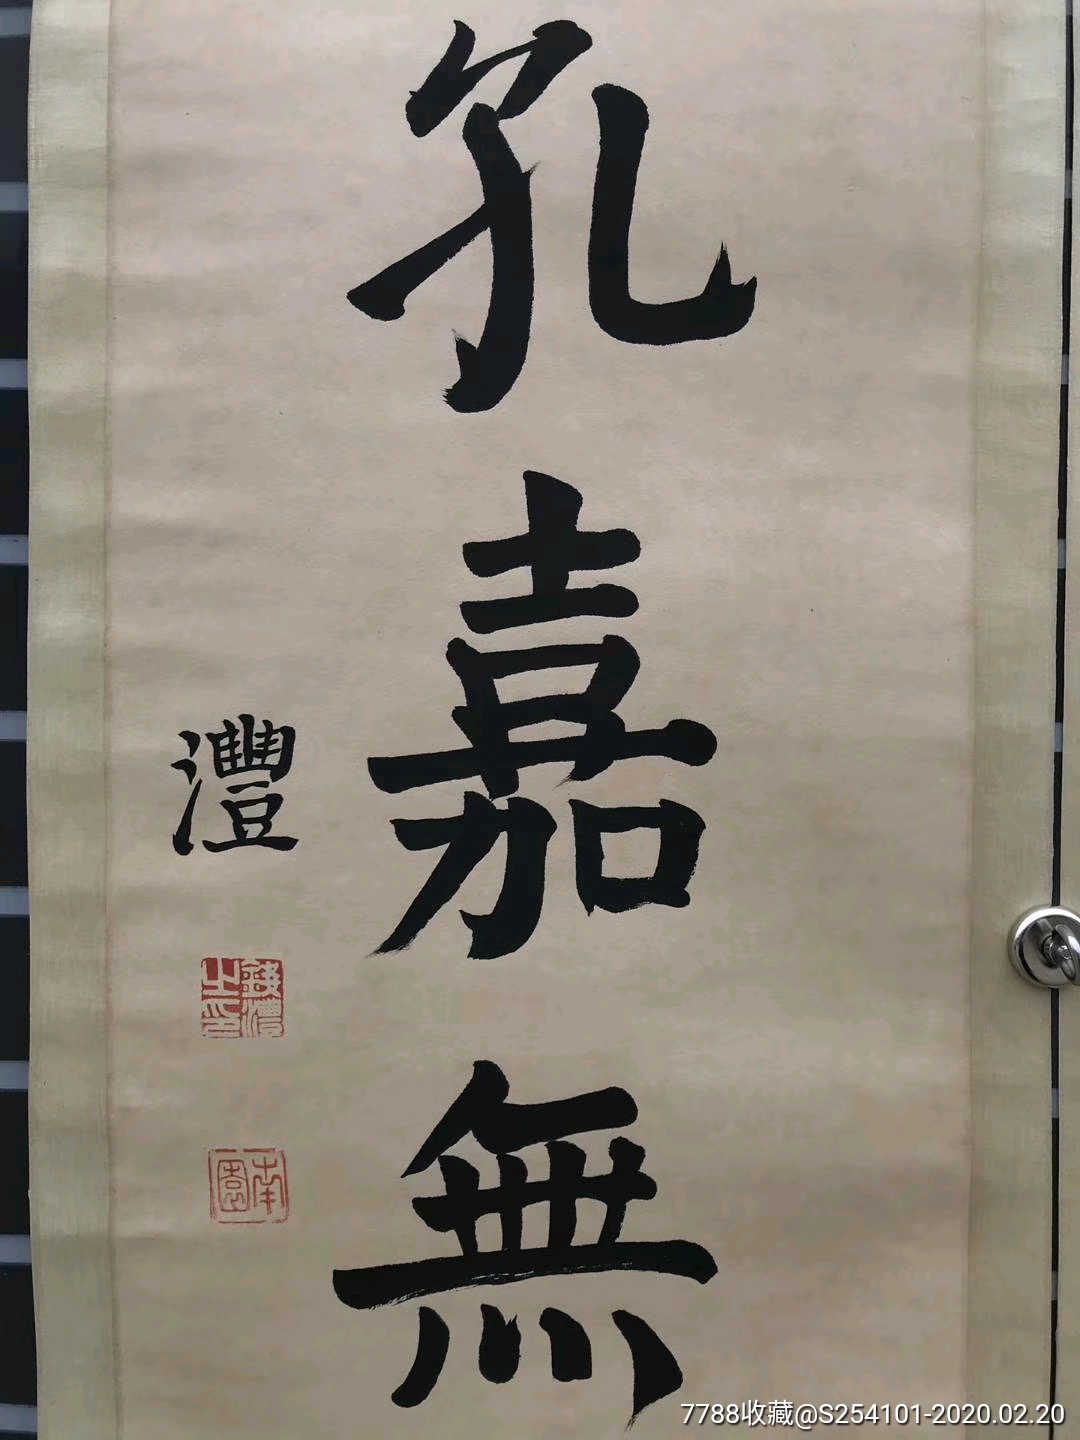 孔嘉無
灃
錢灃之印
南園
7788收藏@S254101-2020.02.20